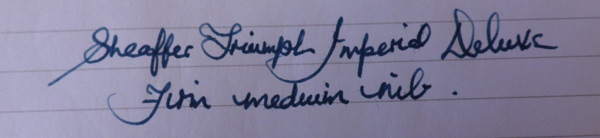 Sheaffer Triumph Imperial Deluxe
Firm medium nib.